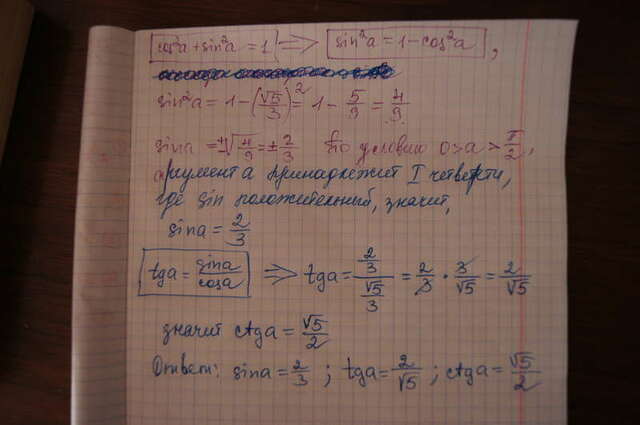 cos²a + sin²a = 1 ⇒ sin²a = 1 - cos²a,
sin²a = 1 - (√5/3)² = 1 - 5/9 = 4/9
sina = ±√4/9 = ±2/3 По условию 0>a>π/2,
аргумент a принадлежит I четверти,
где sin положительный, значит,
sina = 2/3
tga = sina/cosa ⇒ tga = 2/3 / √5/3 = 2/3 · 3/√5 = 2/√5
значит ctga = √5/2
Ответ: sina = 2/3 ; tga = 2/√5 ; ctga = √5/2